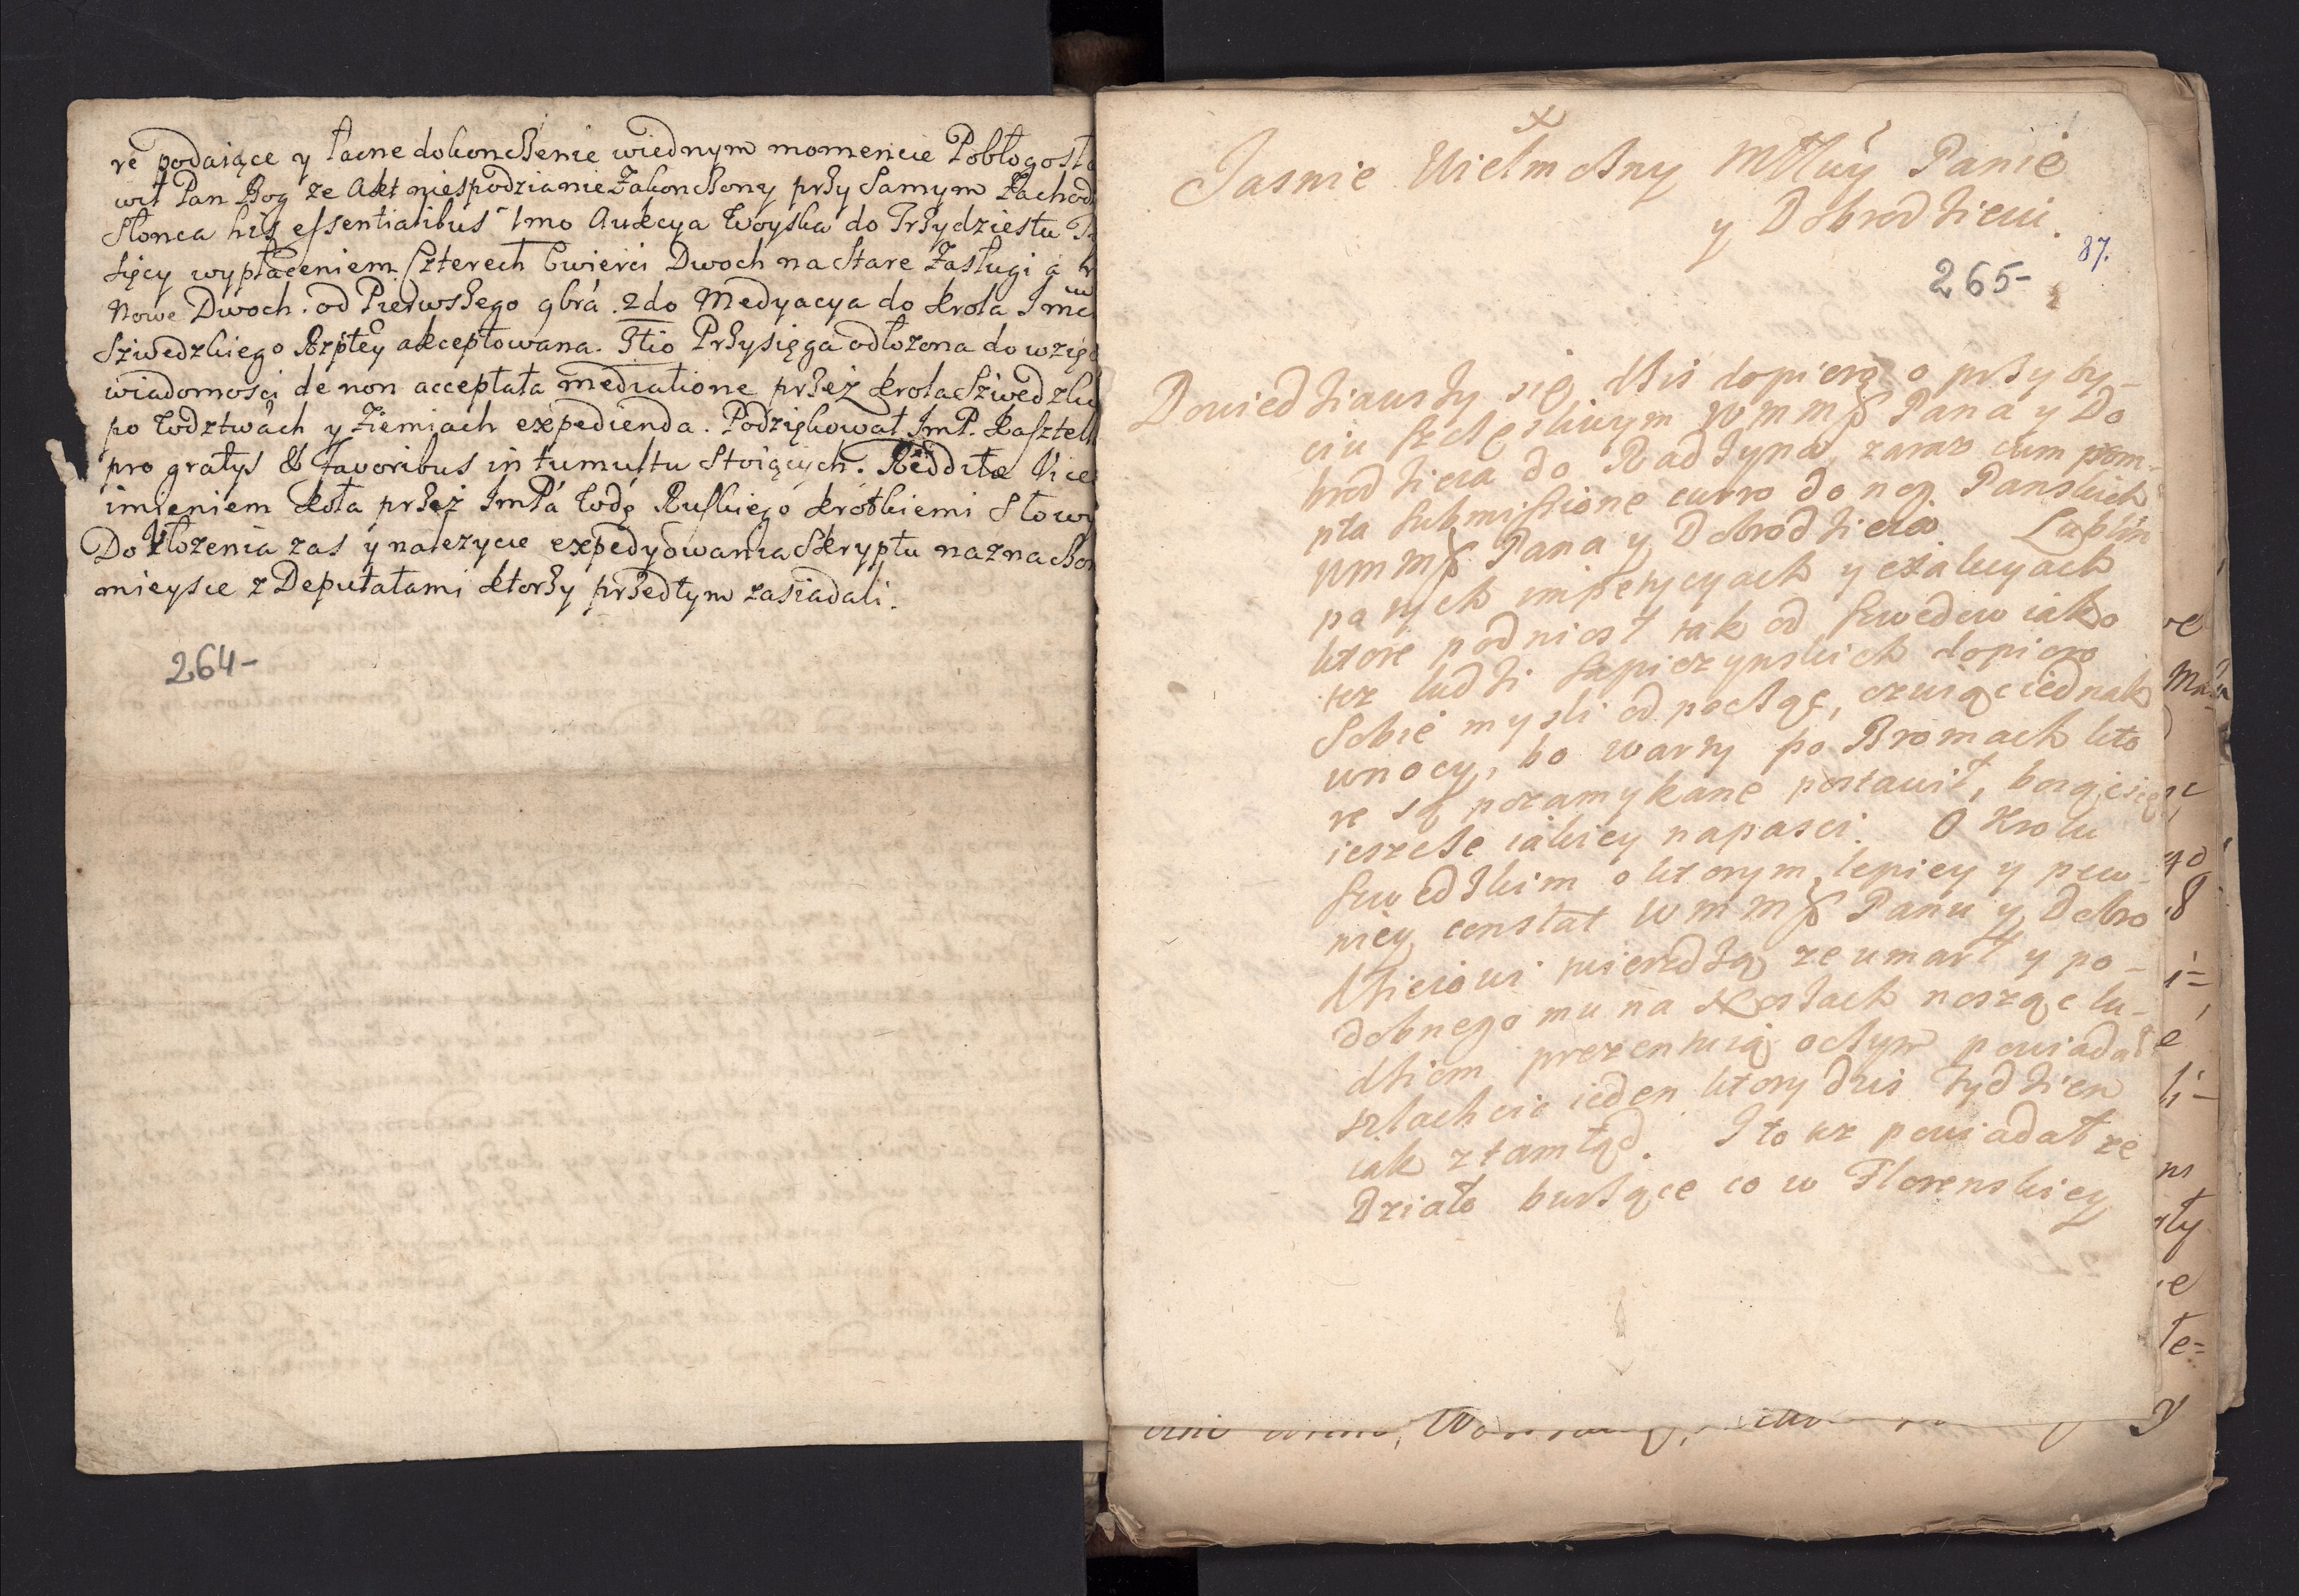 re podaiące y łacne dokonczenie wiednym momencie Pobłogosła
wił Pan Bog ze Akt niespodzianie Zakonczony przy Samym Zachod
Słonca his essentialibus 1mo Aukcya Woyska do Trzydziestu
sięcy wypłaceniem Szterech Cwierci Dwoch na stare Zasługi a
Nowe Dwoch. od Pierwszego 9bra. 2do Medyacya do krola Jmci
Szwedzkiego Rzptey akceptowana. 3tio Przysięga odłozona do wzię
wiadomosci de non acceptata mediatione przez krola Szwedzki
po Wodztwach y Ziemiach expedienda. Podziękował ImP. Kasztel
pro gratys & favoribus in tumultu Stoiących. Reddita Vice
imieniem koła przez ImPa Wodę Ruskiego krotkiemi Słowy
Do Włozenia zas y nalezycie expedyowania Skryptu naznaczon
mieysce z Deputatami ktorzy przedtym zasiadali.
264-
Jasnie Wielmozny Młłwy Panie
y Dobrodzieiu.
87.
265-
Dowiedziawszy się dzis dopiero o przyby-
ciu szczęsliwym WmmP Pana y Do
brodzieia do Radzyna, zaraz cum prom-
pta submissione curro do nog Panskich
WmmP Pana y Dobrodzieia. Lublin
po tych impetycyach y exakcyach
ktore podniosł tak od Szwedow iako
tez ludzi Sapiezynskich dopiero
sobie mysli odpocząc, czuiąc iednak
wnocy, bo warty po Bromach kto
re są pozamykane postawił, boiąc się
ieszcze iakiey napasci. O Krolu
Szwedzkim o ktorym lepiey y pew-
niey constat WmmP Panu y Dobro
dzieiowi twierdzą ze umarł y po-
dobnego mu na Xestach nosząc lu-
dziom prezentuią oczym powiadał
szlachcic ieden ktory dzis tydzien
iak ztamtąd. I to tez powiadał ze
Działo burzące co w Florenskiey